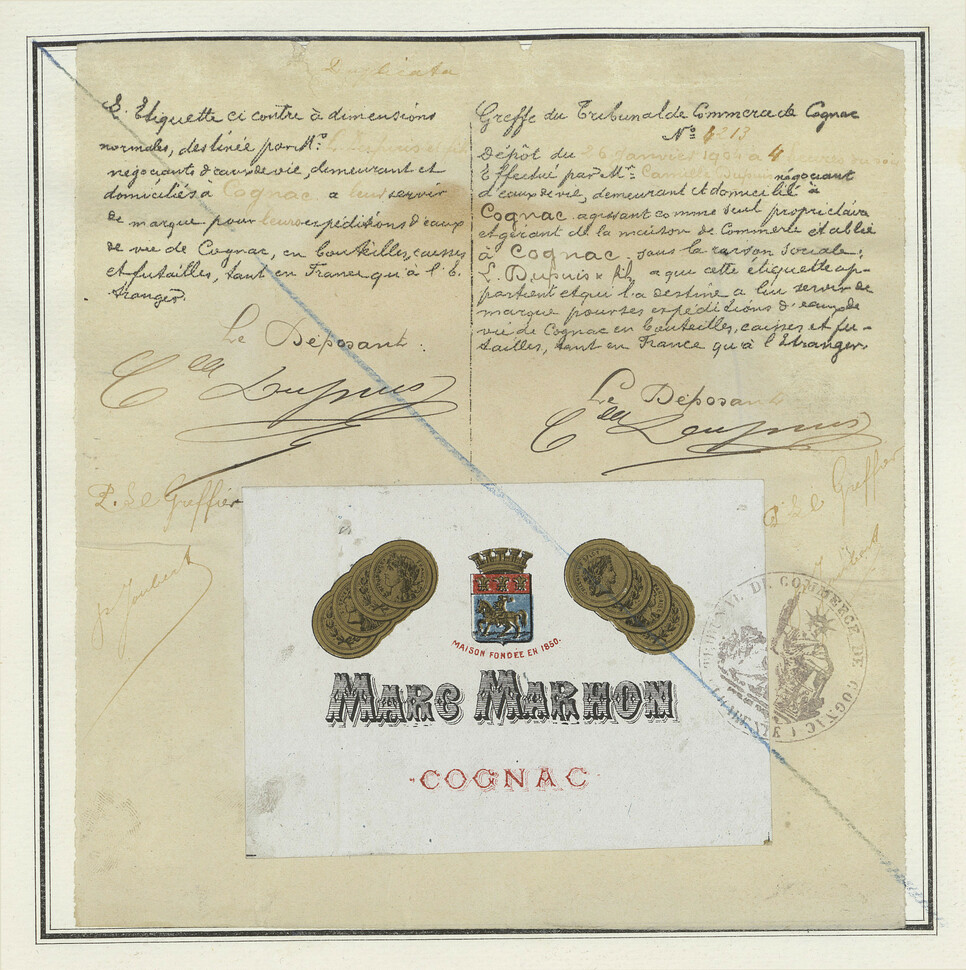 Duplicata
L'Etiquette ci contre à dimensions
normales, destinée par Mr. L. Dupuis et fils
négociants d'eaux de vie, demeurant et
domiciliés à Cognac a leur servir
de marque pour leurs expéditions d'eaux
de vie de Cognac, en bouteilles, caisses
et futailles, tant en France qu'à l'é-
tranger.
Le Déposant:
Clla Dupuis
P. Le Greffier
Joubert
Greffe du Tribunal de Commerce de Cognac
No. 4213
Dépôt du 26 Janvier 1904 à 4 heures du soir
Effectué par Mr. Camille Dupuis négociant
d'eaux de vie, demeurant et domicilié à
Cognac, agissant comme seul propriétaire
et gérant de la maison de Commerce établie
à Cognac, sous la raison sociale:
L. Dupuis & fils a que cette étiquette ap-
partient et qui l'a destine a lui servir de
marque pour ses expéditions d'eaux de
vie de Cognac en bouteilles, caisses et fu-
tailles, tant en France qu'à l'Etranger.
Le Déposant
Clla Dupuis
P. Le Greffier
MAISON FONDÉE EN 1850.
MARC MARHON
COGNAC
TRIBUNAL DE COMMERCE DE COGNAC